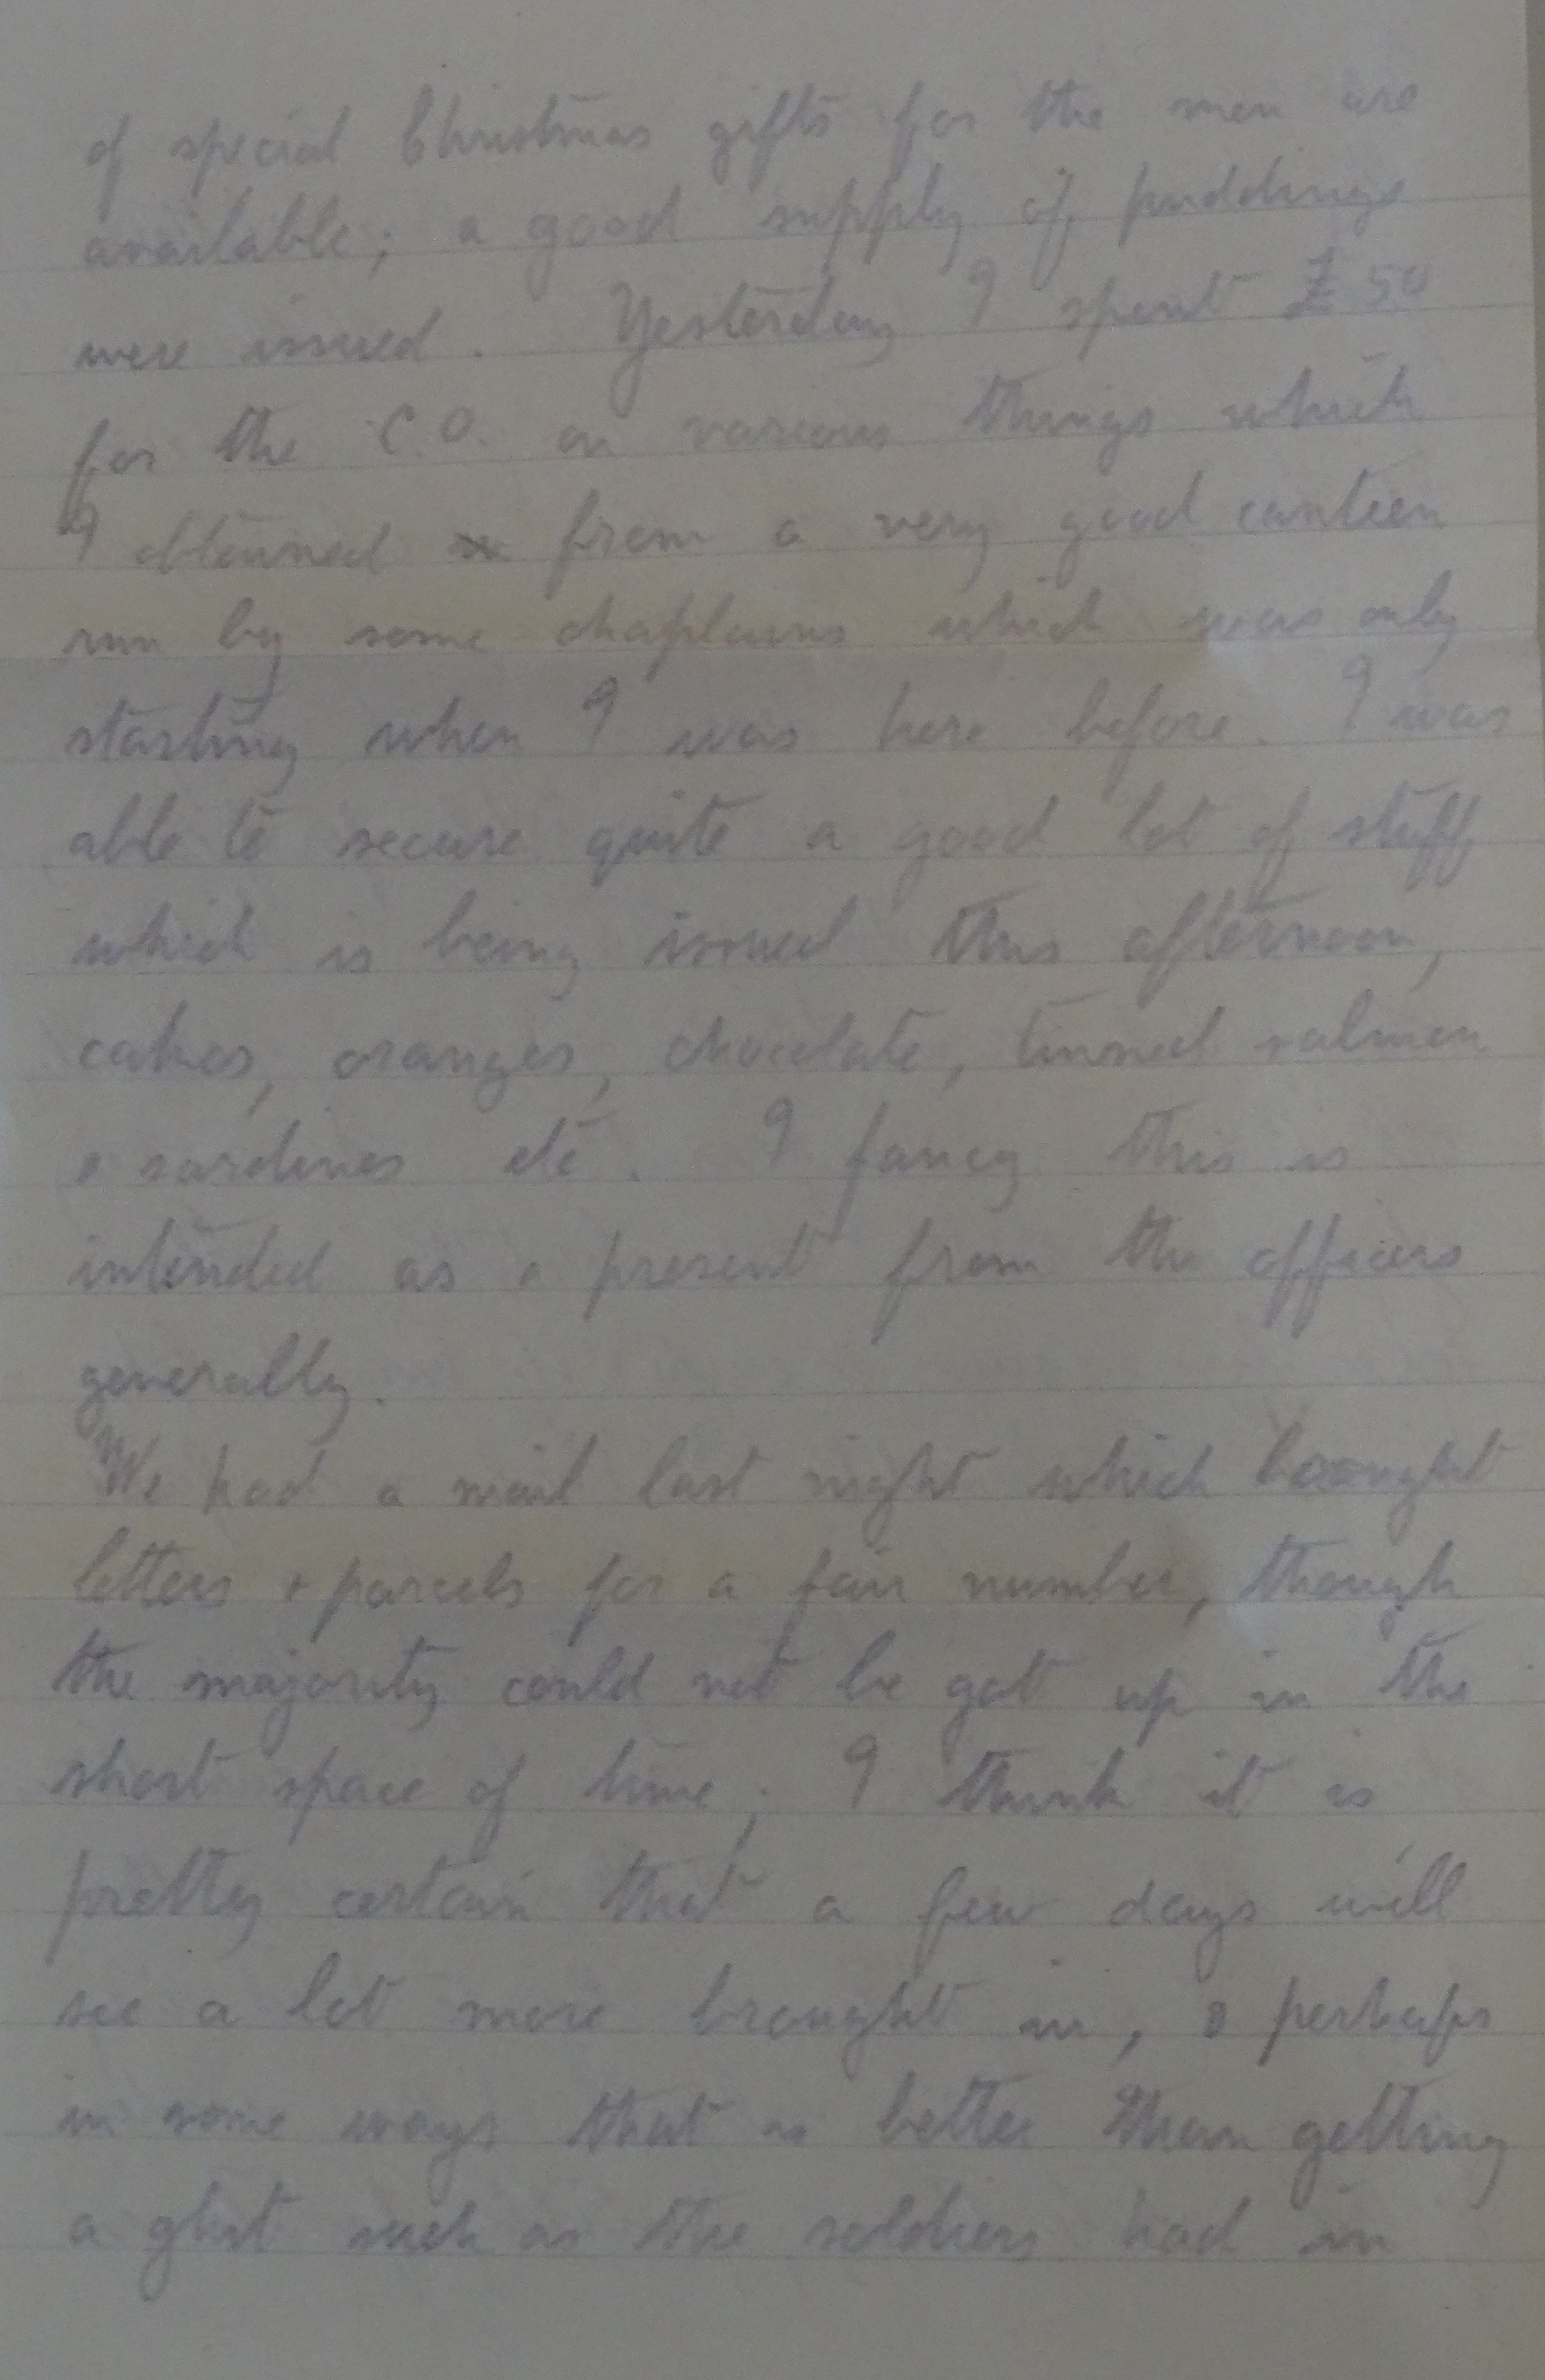 of special Christmas gifts for the men are
available; a good supply of puddings
were issued. Yesterday I spent £50
for the C.O. on various things which
I obtained from a very good canteen
run by some chaplains which was only
starting when I was here before. I was
able to secure quite a good lot of stuff
which is being issued this afternoon,
cakes, oranges, chocolate, tinned salmon
+ sardines etc. I fancy this is
intended as a present from the officers
generally.
We had a mail last night which brought
letters + parcels for a fair number, though
the majority could not be got up in the
short space of time; I think it is
pretty certain that a few days will
see a lot more brought in, + perhaps
in some ways that is better than getting
a glut such as the soldiers had in